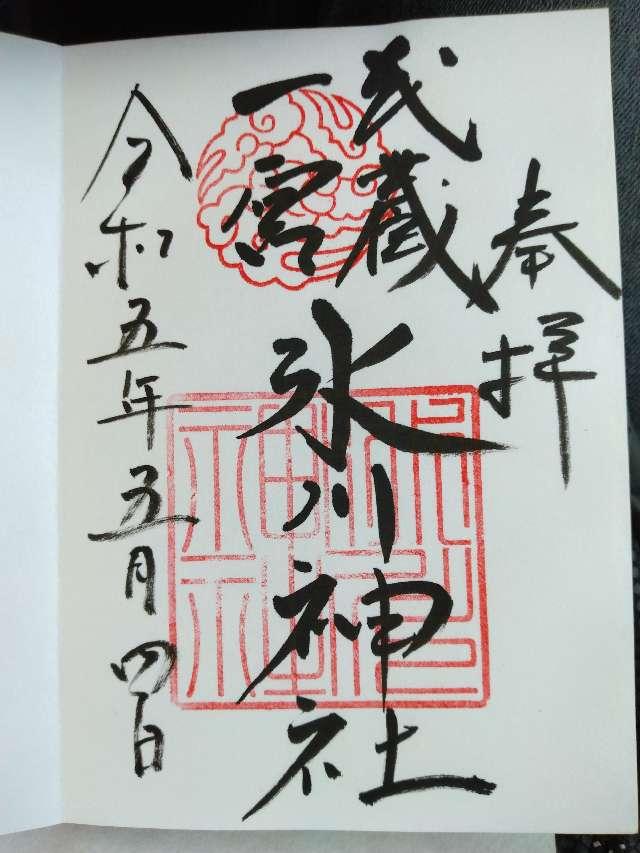 奉拝
武蔵
一宮
氷川神社
令和五年五月四日